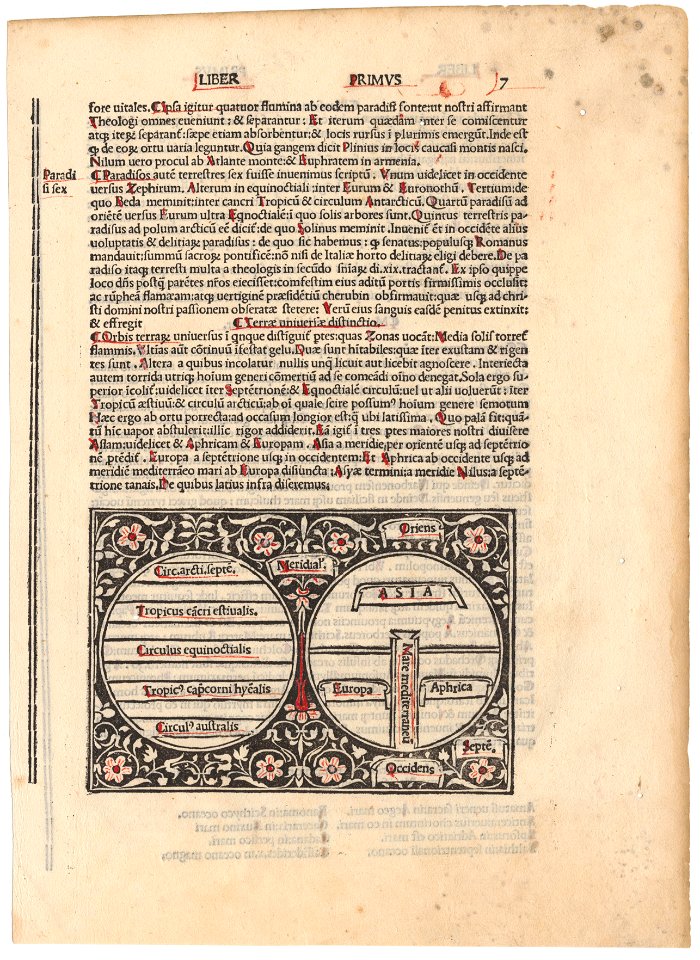 LIBER PRIMVS 7
fore uitales. Ipsa igitur quatuor flumina ab eodem paradisi fonte:ut nostri affirmant
Theologi omnes eueniunt: & separantur: Et iterum quædam inter se comiscentur
atq; iteꝝ separant᷑: sæpe etiam absorbentur: & locis rursus ĩ plurimis emergũt. Inde est
ꝙ de eoꝝ ortu uaria leguntur. Quia gangem dicit Plinius in locis caucasi montis nasci.
Nilum uero procul ab Atlante monte: & Euphratem in armenia.
Paradi
si sex
Paradisos autē terrestres sex fuisse inuenimus scriptum. Vnum uidelicet in occidente
uersus Zephirum. Alterum in equinoctiali: inter Eurum & Euronothũ. Tertium: de
quo Beda meminit: inter cancri Tropicũ & circulum Antarcticũ. Quartũ paradisũ ad
oriētē uersus Eurum ultra Eqnoctialē: ĩ quo solis arbores sunt. Quintus terrestris pa-
radisus ad polum arcticũ eē dicit᷑: de quo Solinus meminit. Inuenit᷑ et in occidēte alius
uoluptatis & delitiaꝝ paradisus: de quo sic habemus: ꝙ senatus: populusq; Romanus
mandauit: summũ sacroꝝ pontificē: nõ nisi de Italiæ horto delitiaꝝ eligi debere. De pa
radiso itaq; terresti multa a theologis in secũdo sniaꝝ di.xix. tractant᷑. Ex ipso quippe
loco dñs postq̃ parētes nr̃os eiecisset: comfestim eius aditũ portis firmissimis occlusit:
ac rũpheā flamæam: atq; uertiginē præsidētiũ cherubin obfirmauit: quæ usq; ad chri-
sti domini nostri passionem obseratæ stetere: Verũ eius sanguis easdē penitus extinxit:
& effregit Terræ uniuersæ distinctio.
Orbis terraꝝ uniuersus ĩ qnque distiguit᷑ ptes: quas Zonas uocãt: Media solis torret᷑
flammis. Vltias aut cõtinuũ ĩfestat gelu. Quæ sunt hitabiles: quæ iter exustam & rigen
tes sunt. Altera a quibus incolatur nullis unq̃ licuit aut licebit agnoscere. Interiecta
autem torrida utriq; hoium generi cõmertiũ ad se comeādi oĩno denegat. Sola ergo su-
perior ĩcolit᷑: uidelicet iter Septētrionē: & Eqnoctialē circulũ: uel ut alii uoluerũt: iter
Tropicũ æstiuũ & circulũ arcticũ: ab oĩ quale scire possum⁹ hoium genere semotum
Hæc ergo ab ortu porrecta: ad occasum longior estq̃ ubi latissima. Quo palã fit: quã-
tũ hic uapor abstulerit: illic rigor addiderit. Ea igif ĩ tres ptes maiores nostri diuisere
Asiam: uidelicet & Aphricam & Europam. Asia a meridie, per orientē usq; ad septētrio
nē ptēdit᷑. Europa a septētrione usq; in occidentem: Et Aphrica ab occidente usq; ad
meridiē mediterrāeo mari ab Europa disiuncta: Asyæ termini: a meridie Nilus: a septē-
trione tanais. De quibus latius infra diseremus.
Oriens
Meridial'.
Circ. arcti. septē.
Tropicus cãcri estiualis.
Circulus equinoctialis
Tropic⁹ capcorni hyēalis
Circul⁹ australis
ASIA
Mare mediterraneũ
Europa
Aphrica
Septē.
Occidens